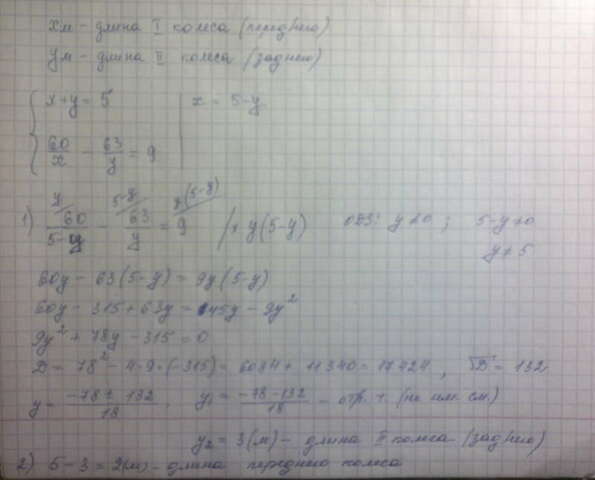 x м - длина I колеса (переднего)
y м - длина II колеса (заднего)
{ x+y = 5 | x = 5-y
60/x - 63/y = 9
1) 60/(5-y) - 63/y = 9 | × y(5-y) ОДЗ: y≠0 ; 5-y≠0
y≠5
60y - 63(5-y) = 9y(5-y)
60y - 315 + 63y = 45y - 9y²
9y² + 78y - 315 = 0
D = 78² - 4·9·(-315) = 6084 + 11340 = 17424 , √D = 132
y = (-78 ± 132)/18 , y₁ = (-78-132)/18 - отр. ч. (не им. см.)
y₂ = 3 (м) - длина II колеса (заднего)
2) 5-3 = 2(м) - длина переднего колеса